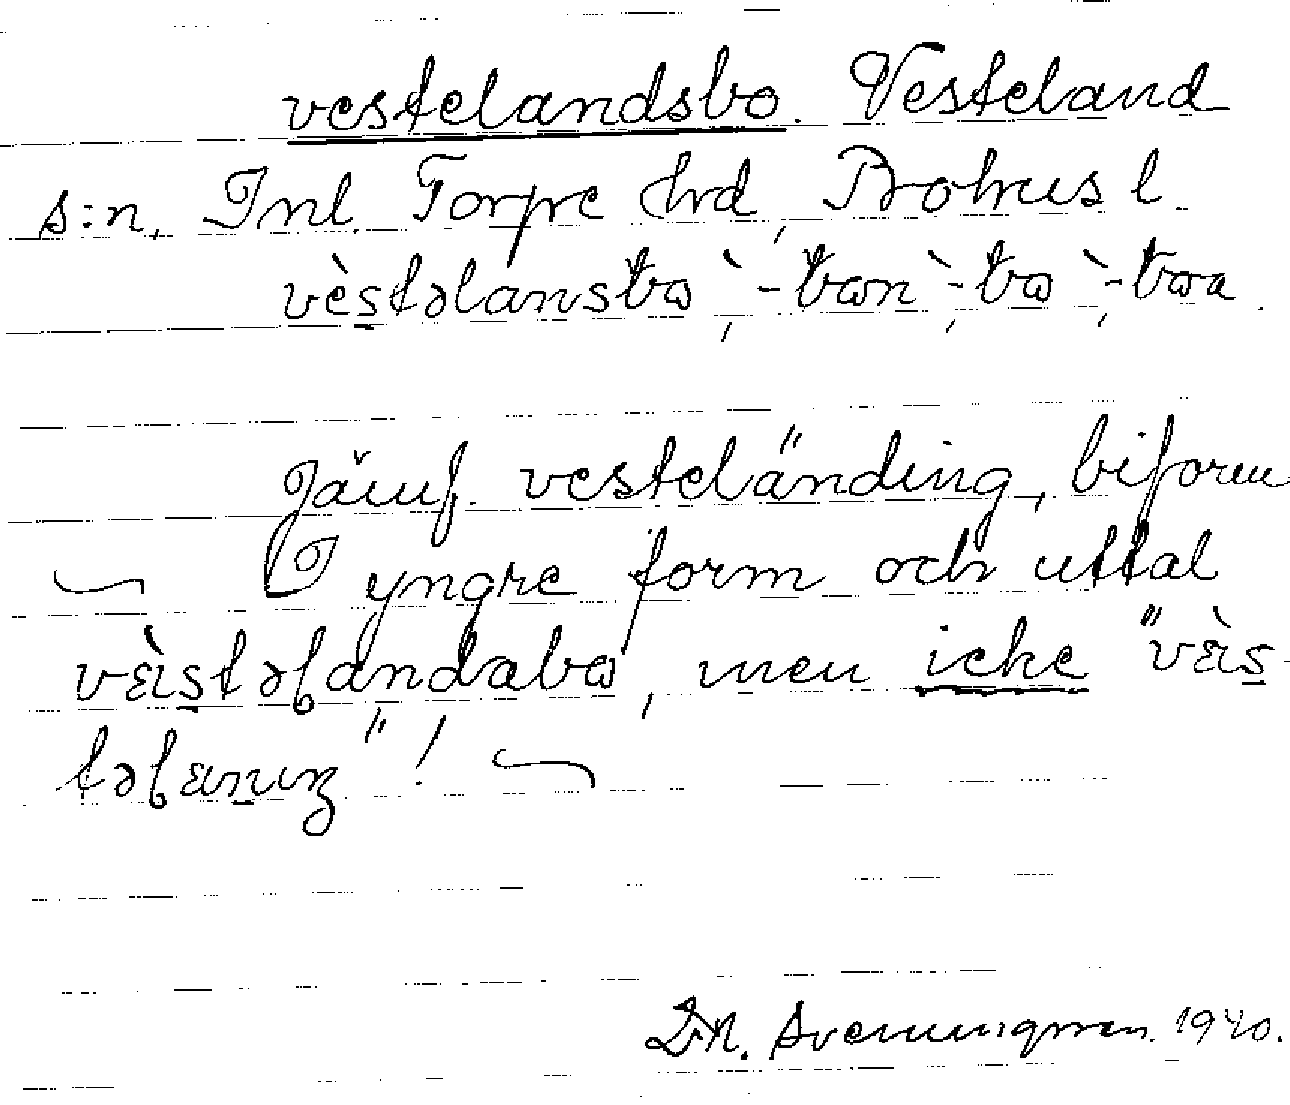 vestelandsbo. Vesteland
s:n, Inl. Torpe hrd, Bohus l.
vès̱təlansbɷ`, -bɷn`, -bɷ`, -bɷa.
Jämf. vesteländing, biform
I yngre form och uttal
vèis̱təlandabɷ, men icke "vèis̱-
təlɛniŋ"!
1940.